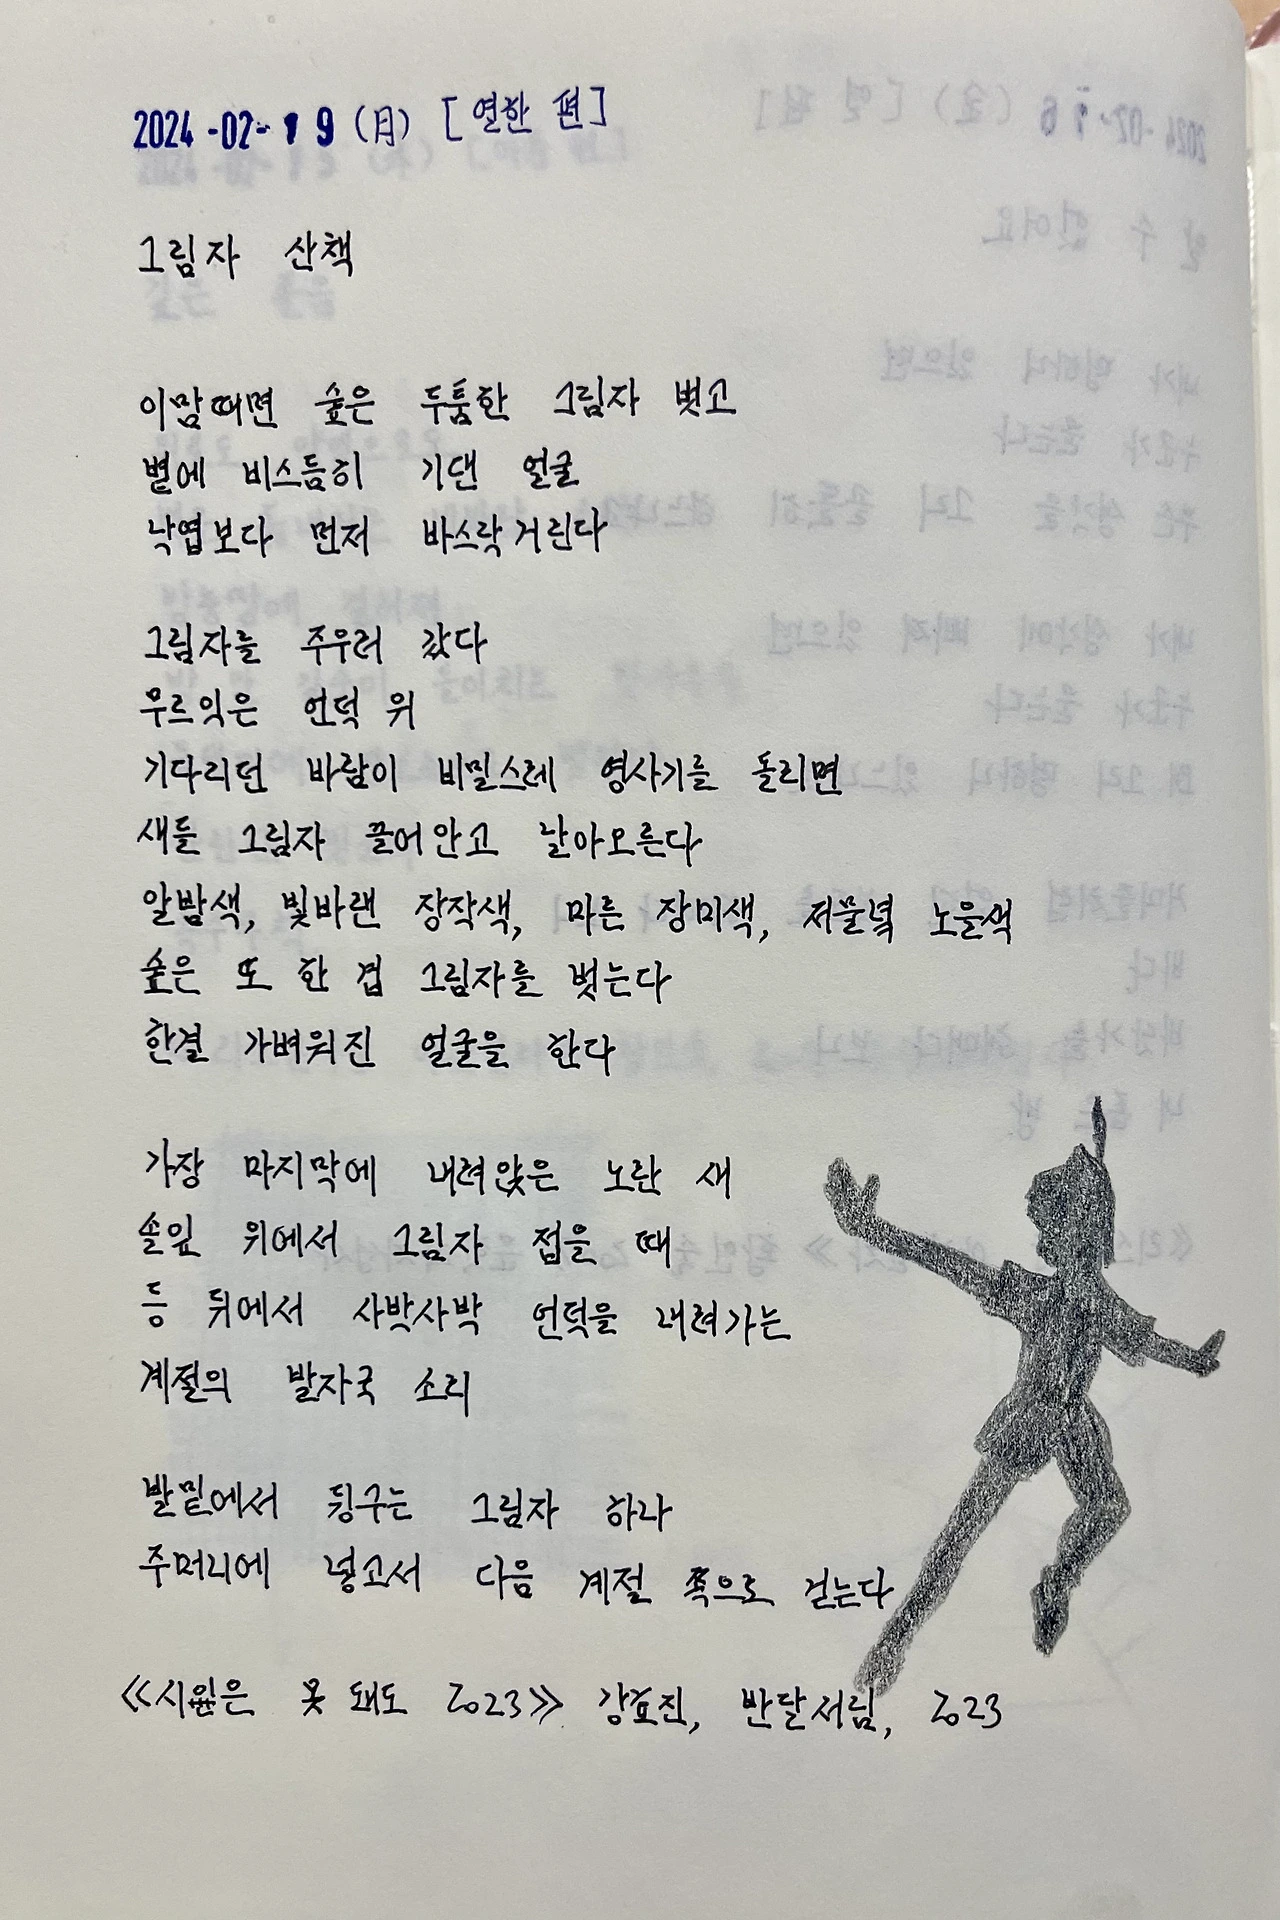 2024-02-19 (月) [열한 편]
그림자 산책
이맘때면 숲은 두툼한 그림자 벗고
볕에 비스듬히 기댄 얼굴
낙엽보다 먼저 바스락거린다
그림자를 주우러 갔다
무르익은 언덕 위
기다리던 바람이 비밀스레 영사기를 돌리면
새들 그림자 끌어안고 날아오른다
알밤색, 빛바랜 장작색, 마른 장미색, 저물녘 노을색
숲은 또 한 겹 그림자를 벗는다
한결 가벼워진 얼굴을 한다
가장 마지막에 내려앉은 노란 새
솔잎 위에서 그림자 접을 때
등 뒤에서 사박사박 언덕을 내려가는
계절의 발자국 소리
발밑에서 뒹구는 그림자 하나
주머니에 넣고서 다음 계절 쪽으로 걷는다
≪시인은 못 돼도 2023≫ 강효진, 반달서림, 2023